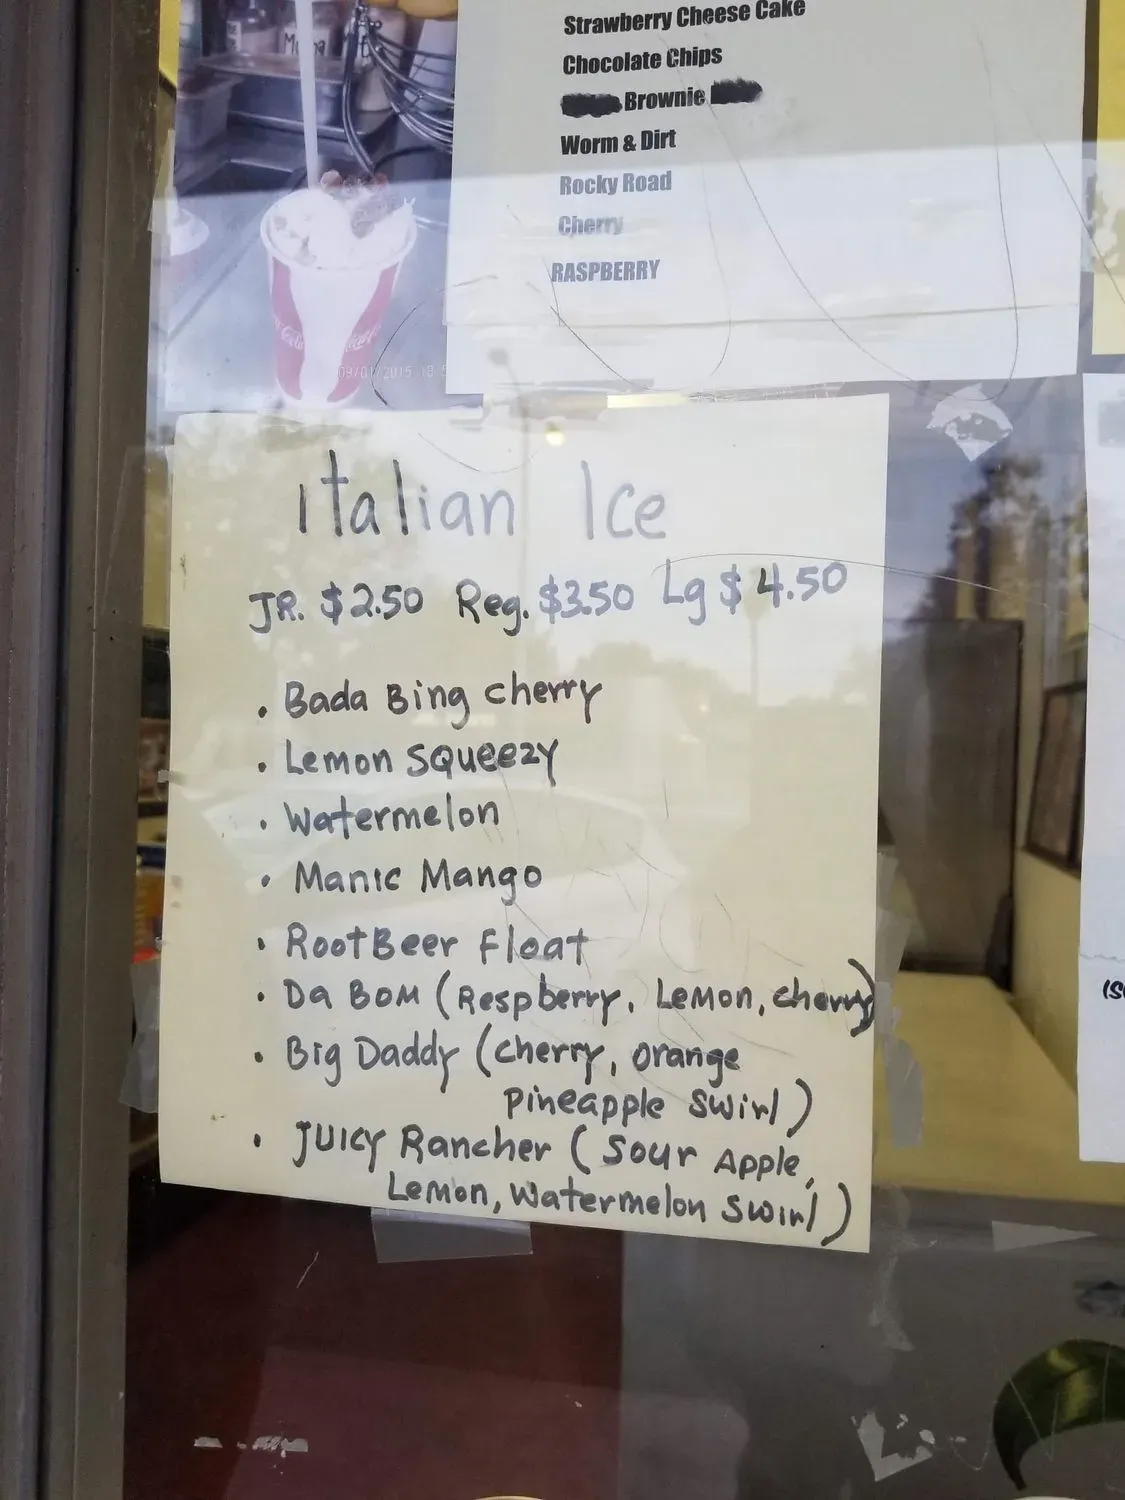 Strawberry Cheese Cake
Chocolate Chips
Brownie
Worm & Dirt
Rocky Road
Cherry
RASPBERRY
09/01/2015 18:5
italian Ice
JR. $2.50 Reg. $3.50 Lg $4.50
• Bada Bing cherry
• Lemon SQueezy
• Watermelon
• Manic Mango
• RootBeer Float
• Da BOM (Respberry, Lemon, cherry)
• Big Daddy (cherry, orange
Pineapple Swirl)
• Juicy Rancher (Sour Apple,
Lemon, Watermelon Swirl)